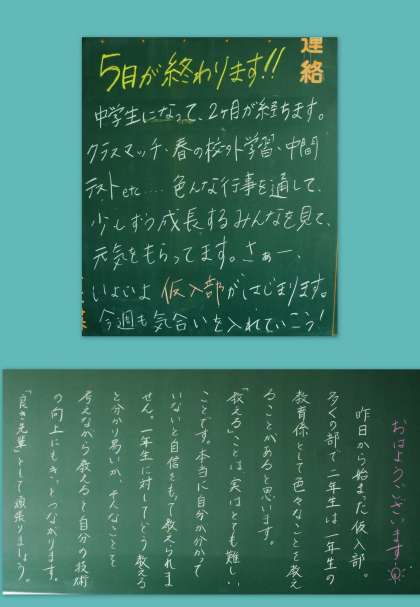 連絡
5月が終わります!!
中学生になって、2ヶ月が経ちます。
クラスマッチ・春の校外学習・中間
テストetc.... 色んな行事を通して、
少しずつ成長するみんなを見て、
元気をもらってます。さぁー、
いよいよ仮入部がはじまります。
今週も気合いを入れていこう!
おはようございます
昨日から始まった仮入部。
多くの部で二年生は一年生の
教育係として色々なことを教え
ることがあると思います。
「教える」ことは実はとても難しい
ことです。本当に自分が分かって
いないと自信をもって教えられま
せん。一年生に対してどう教える
と分かり易いか、そんなことを
考えながら教えると自分の技術
の向上にもきっとつながります。
「良き先輩」として頑張りましょう。